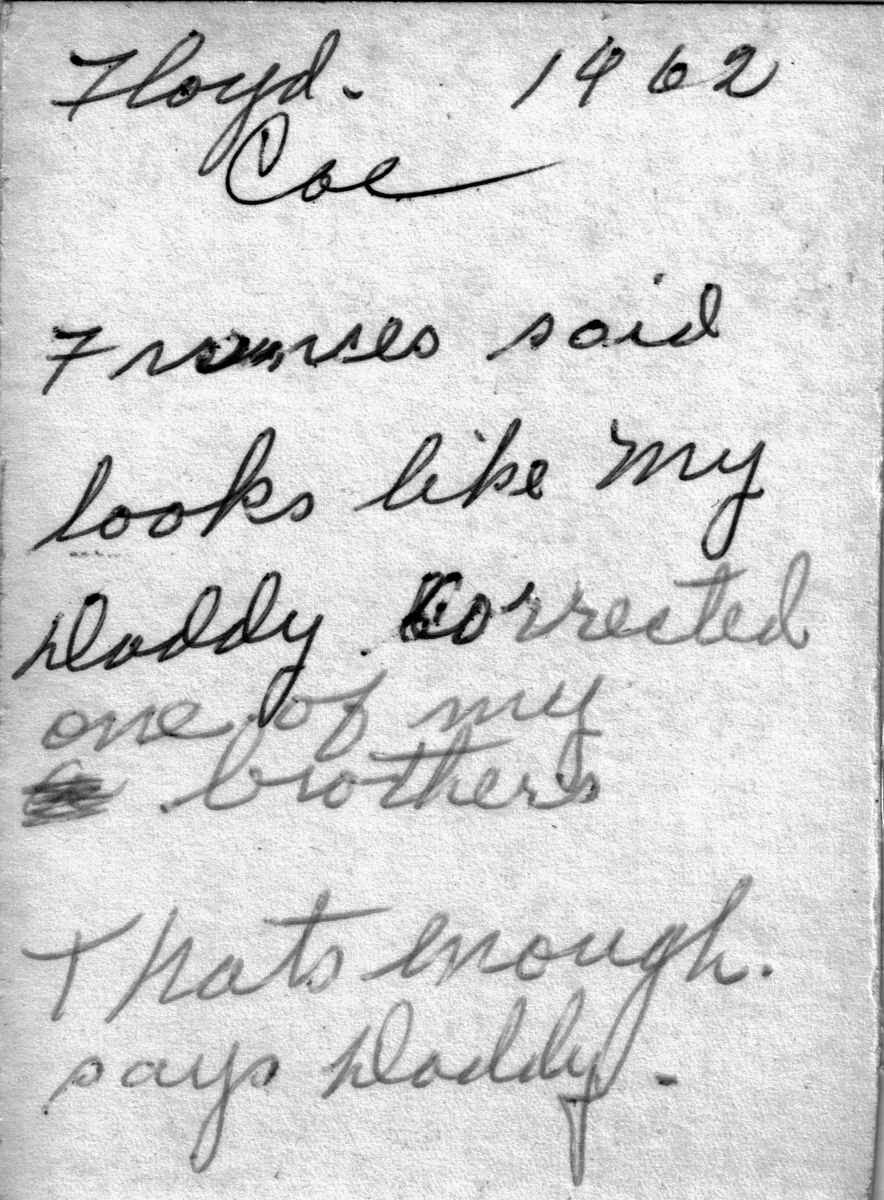 Floyd. 1962
Coe
Franses said
looks like My
Daddy. Corrected
one of my
brothers
Thats enough.
says Daddy.